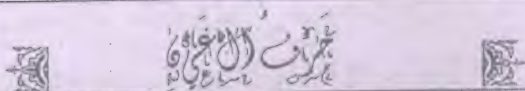 حَرْفُ الْغَيْن